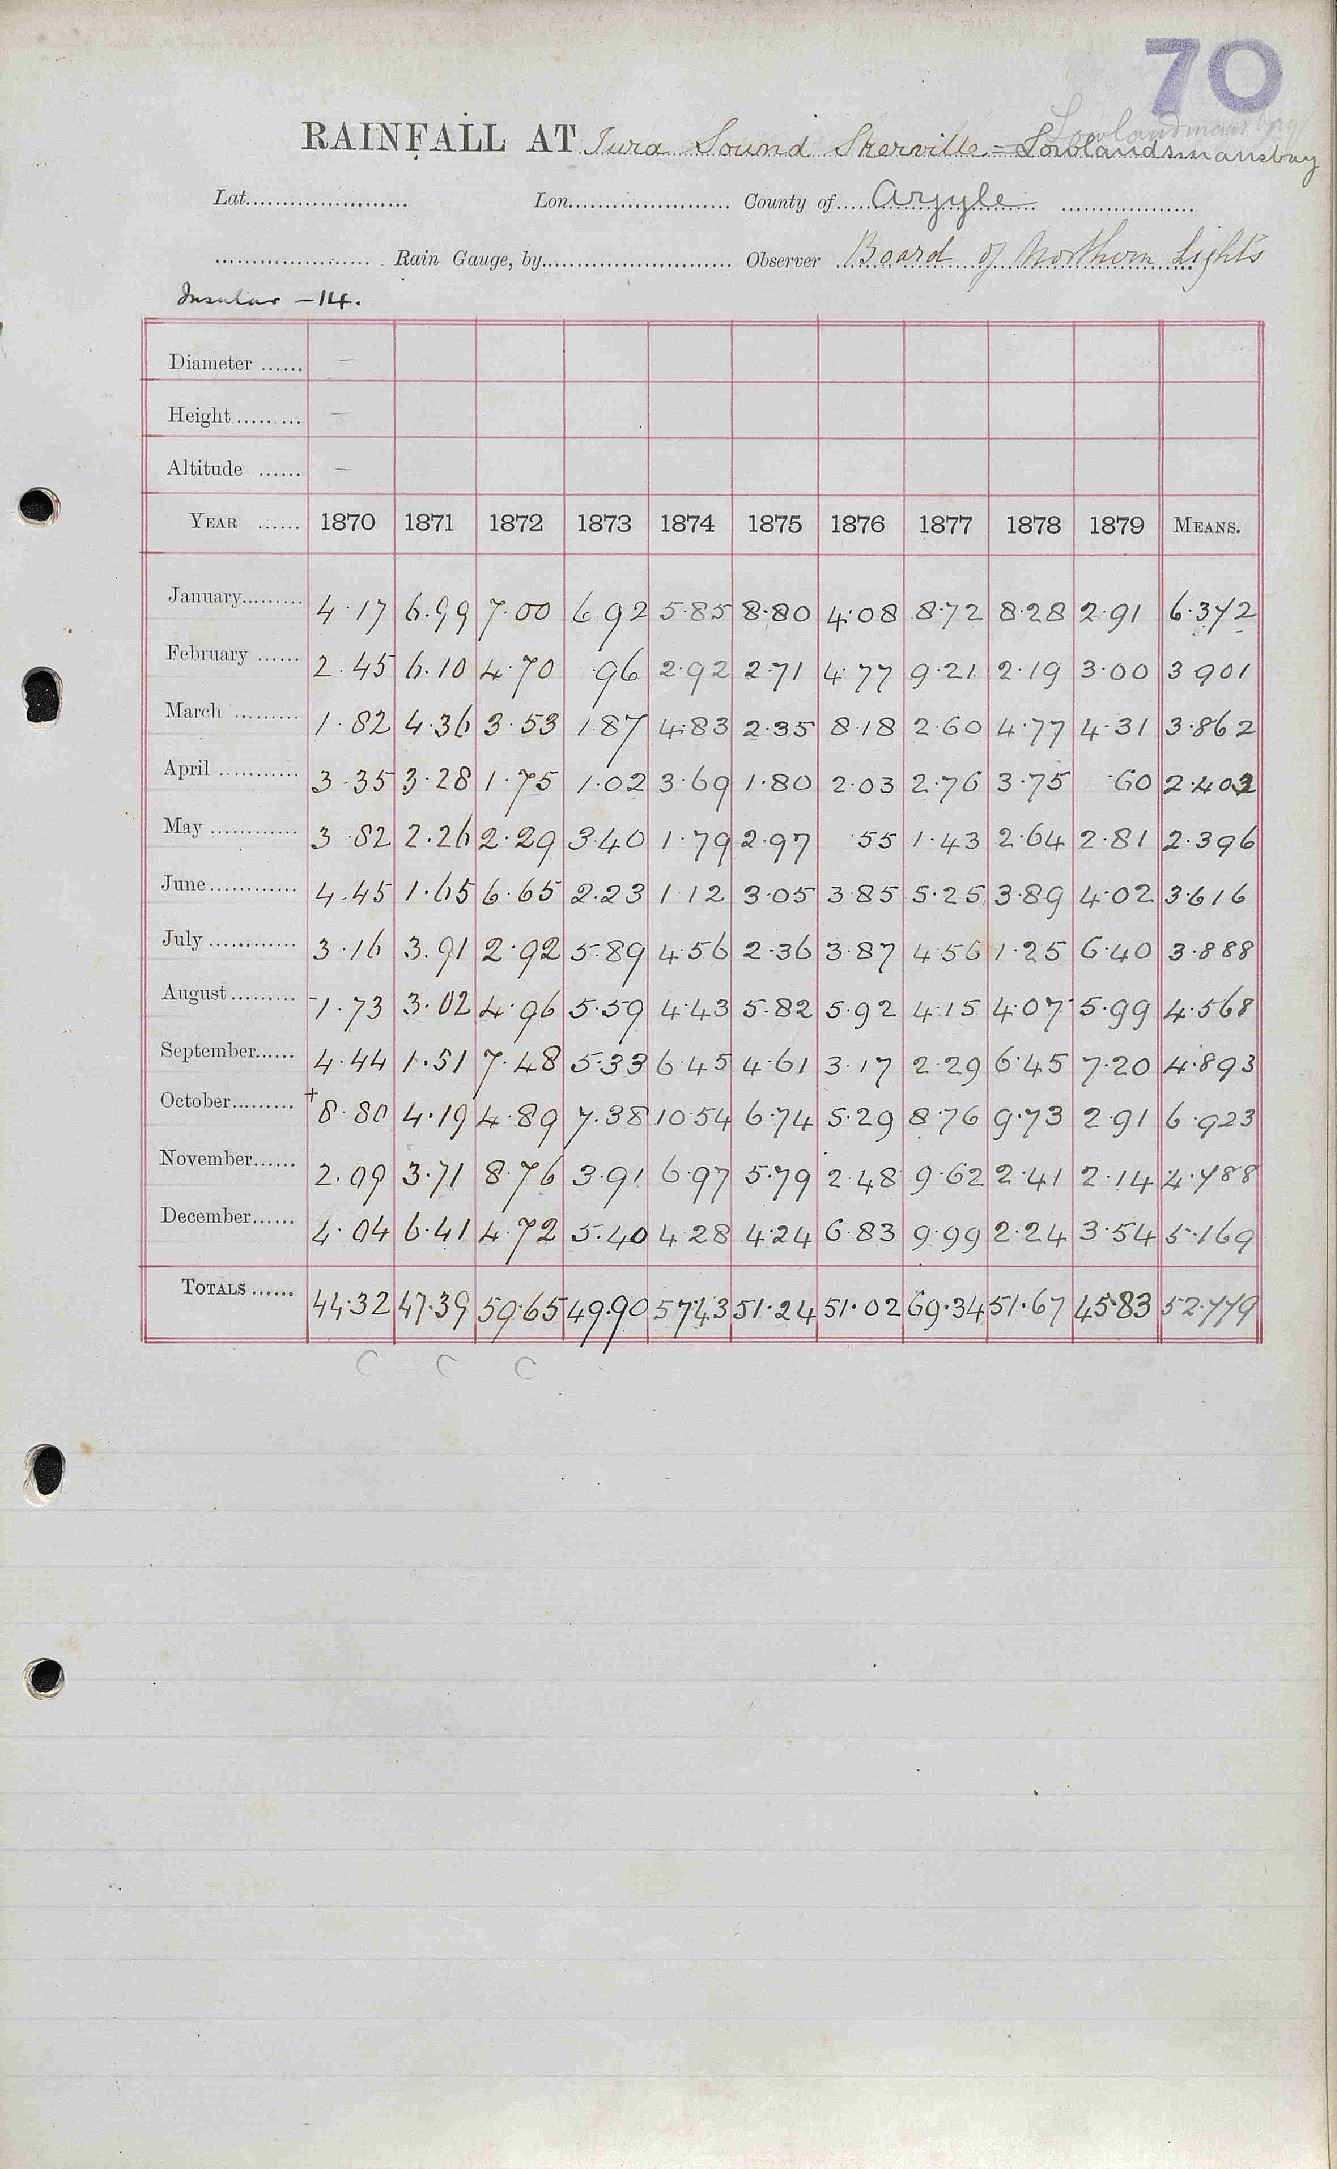 70
Lowlandmansbay
RAINFALL AT Jura Sound Skerville = Lowlandsmansbay
Lat. Lon. County of Argyle
Rain Gauge, by Observer Board of Northern Lights
Insular - 14.
Diameter —
Height —
Altitude —
YEAR 1870 1871 1872 1873 1874 1875 1876 1877 1878 1879 MEANS.
January 4.17 6.99 7.00 6.92 5.85 8.80 4.08 8.72 8.28 2.91 6.372
February 2.45 6.10 4.70 .96 2.92 2.71 4.77 9.21 2.19 3.00 3.901
March 1.82 4.36 3.53 1.87 4.83 2.35 8.18 2.60 4.77 4.31 3.862
April 3.35 3.28 1.75 1.02 3.69 1.80 2.03 2.76 3.75 .60 2.403
May 3.82 2.26 2.29 3.40 1.79 2.97 .55 1.43 2.64 2.81 2.396
June 4.45 1.65 6.65 2.23 1.12 3.05 3.85 5.25 3.89 4.02 3.616
July 3.16 3.91 2.92 5.89 4.56 2.36 3.87 4.56 1.25 6.40 3.888
August -1.73 3.02 4.96 5.59 4.43 5.82 5.92 4.15 4.07 5.99 4.568
September 4.44 1.51 7.48 5.33 6.45 4.61 3.17 2.29 6.45 7.20 4.893
October +8.80 4.19 4.89 7.38 10.54 6.74 5.29 8.76 9.73 2.91 6.923
November 2.09 3.71 8.76 3.91 6.97 5.79 2.48 9.62 2.41 2.14 4.788
December 4.04 6.41 4.72 5.40 4.28 4.24 6.83 9.99 2.24 3.54 5.169
TOTALS 44.32 47.39 59.65 49.90 57.43 51.24 51.02 69.34 51.67 45.83 52.779
C C C